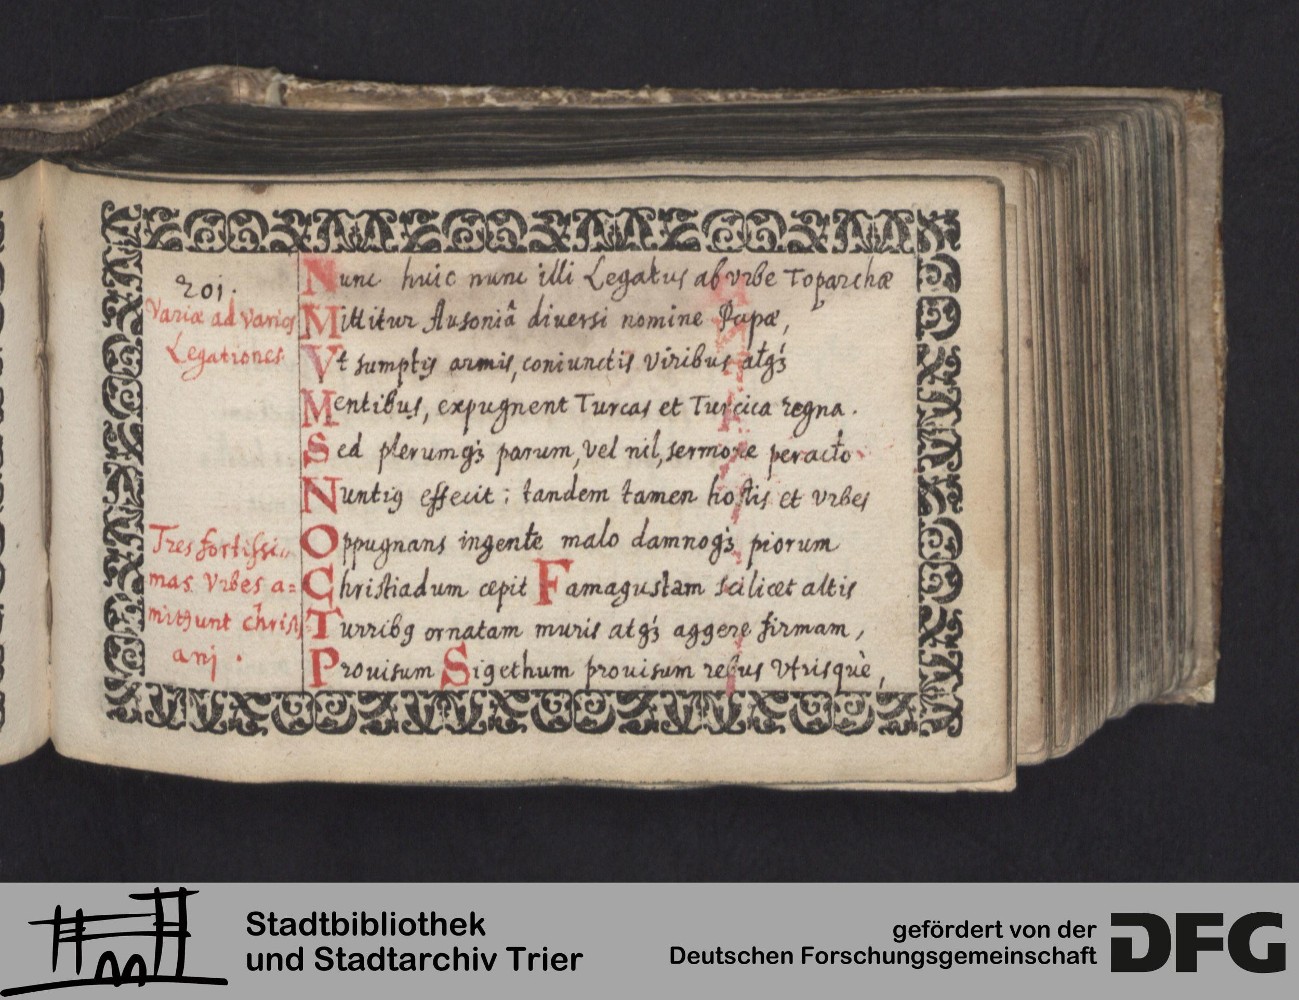 201.
Variæ ad varios
Legationes
Tres fortissi„
mas Vrbes a=
mittunt christi
anj .
Nunc huic nunc illi Legatus ab vrbe Toparchæ
Mittitur Ausoniâ diuersi nomine Papæ,
Vt sumptis armis, coniunctis viribus atqꝫ
Mentibus, expugnent Turcas et Turcica regna.
Sed plerumqꝫ parum, vel nil, sermone peracto
Nuntiꝰ effecit ; tandem tamen hostis et vrbes
Oppugnans ingente malo damnoqꝫ piorum
Christiadum cepit Famagustam scilicet altis
Turribꝰ ornatam muris atqꝫ aggere firmam,
Prouisum Sigethum prouisum rebus Vtrisquè,
Stadtbibliothek
und Stadtarchiv Trier
gefördert von der
Deutschen Forschungsgemeinschaft
DFG